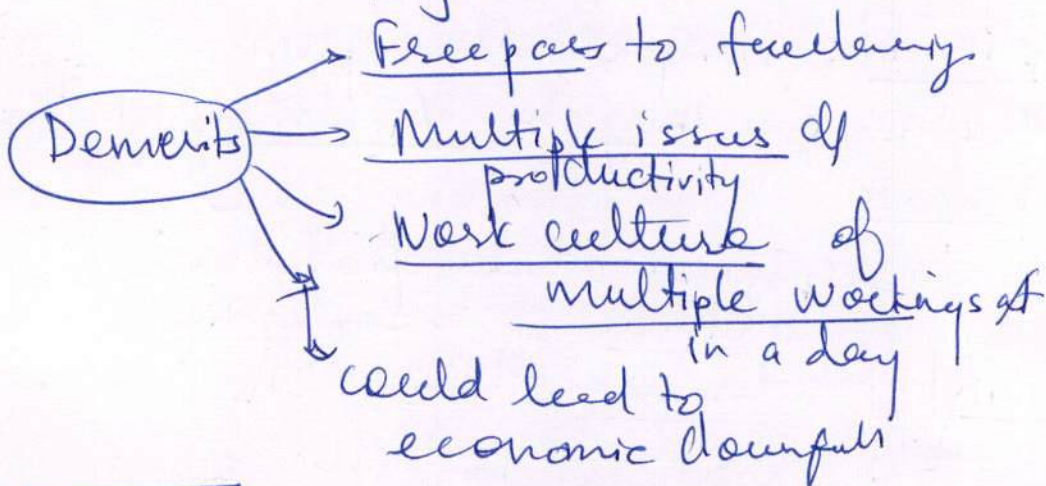 Free pass to
Demerits
Multiple issues of
productivity
Work culture of
multiple workings
in a day
could lead to
economic downfall